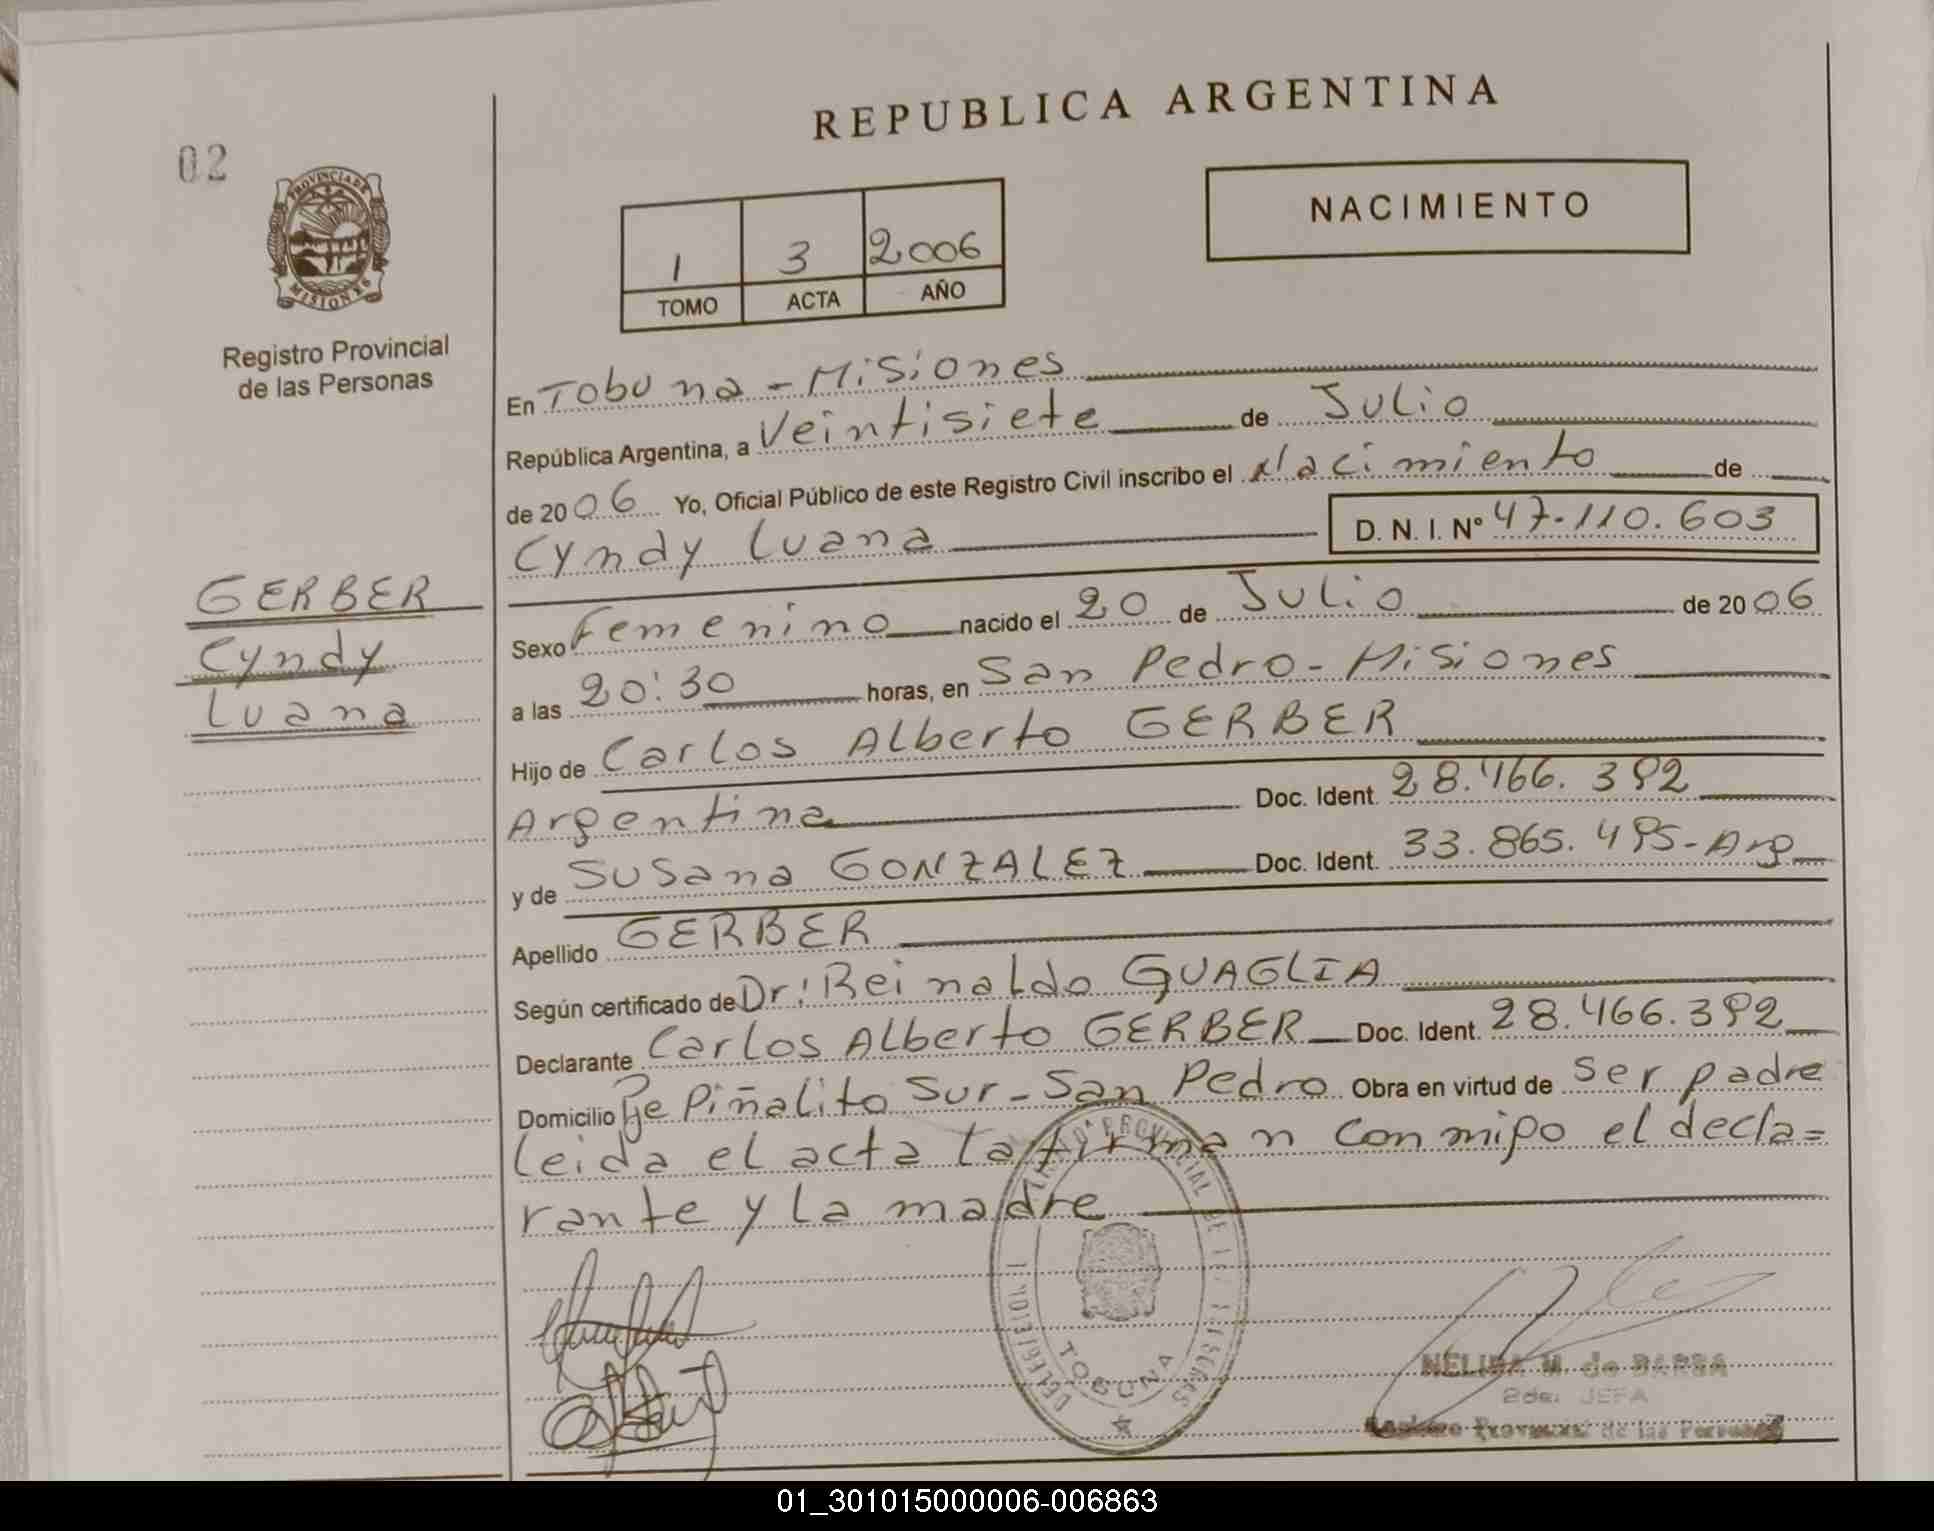 REPUBLICA ARGENTINA
02
PROVINCIA DE
MISIONES
Registro Provincial
de las Personas
NACIMIENTO
1 3 2006
TOMO ACTA AÑO
En Tobuna - Misiones
República Argentina, a Veintisiete de Julio
de 2006 Yo, Oficial Público de este Registro Civil inscribo el Nacimiento de
Cyndy Luana D. N. I. Nº 47.110.603
GERBER
Cyndy
Luana
Sexo Femenino nacido el 20 de Julio de 2006
a las 20:30 horas, en San Pedro - Misiones
Hijo de Carlos Alberto GERBER
Argentina Doc. Ident. 28.466.392
y de Susana GONZALEZ Doc. Ident. 33.865.495 - Arg
Apellido GERBER
Según certificado de Dr: Reinaldo GUAGLIA
Declarante Carlos Alberto GERBER Doc. Ident. 28.466.392
Domicilio Pje Piñalito Sur - San Pedro Obra en virtud de ser padre
leida el acta la firman conmigo el decla=
rante y la madre
TOBUNA
NELIDA M. de BARBA
2da. JEFA
Registro Provincial de las Personas
01_301015000006-006863